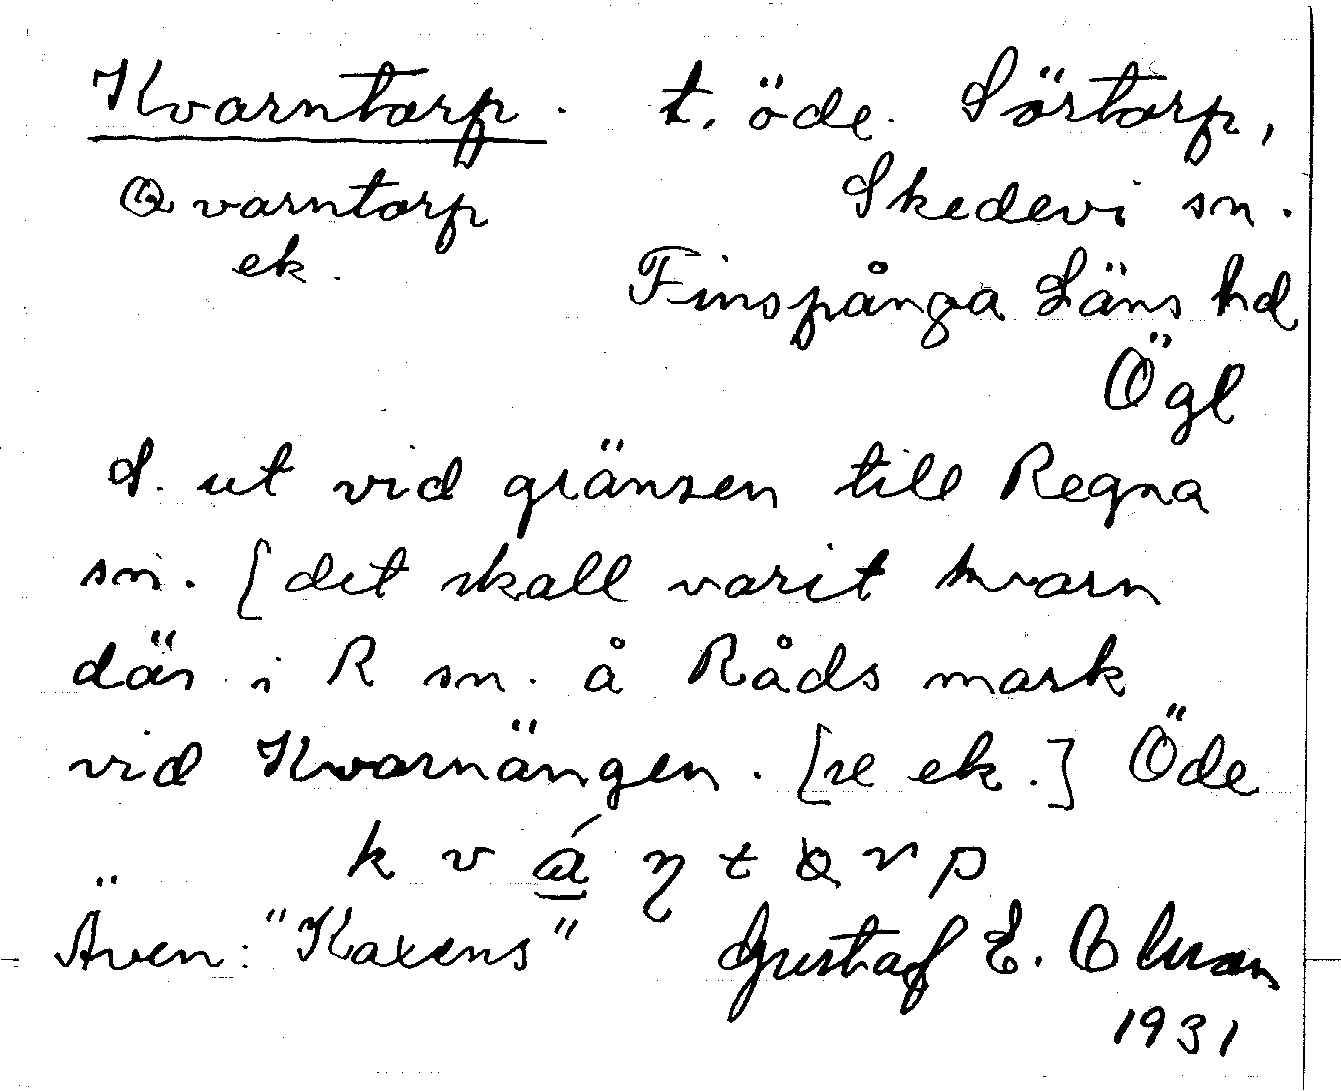 Kvarntorp. t. öde. Sörtorp,
Qvarntorp Skedevi sn.
ek. Finspånga Läns hd
Ögl
S. ut vid gränsen till Regna
sn. [det skall varit kvarn
där i R sn. å Råds mark
vid Kvarnängen. [se ek.] Öde
k v á η t r p
Även: "Kaxens" Gustaf E.
1931